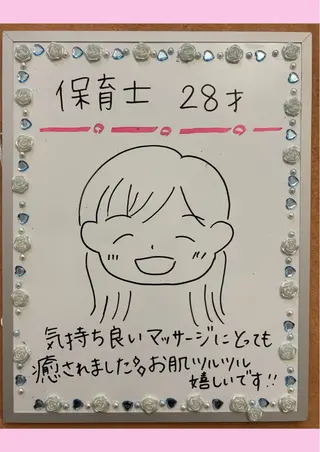 保育士 28才
気持ち良いマッサージにとっても
癒されました♪お肌ツルツル
嬉しいです!!